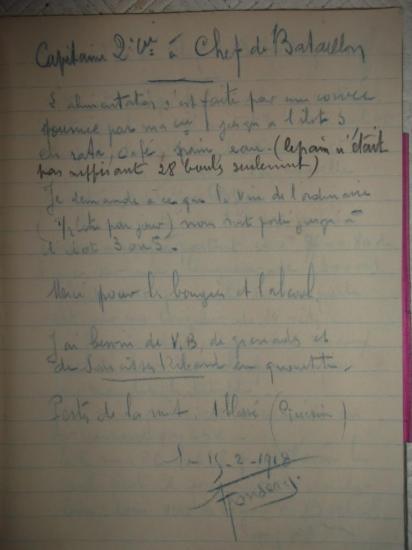 Capitaine 2e Cie à Chef de Bataillon
L'alimentation s'est faite par une corvée
fournie par ma Cie jusqu'à l'îlot 3
en rata, café, eau (le pain n'était
pas suffisant 28 boules seulement)
Je demande à ce que le vin de l'ordinaire
(1/2 litre par jour) nous soit porté jusqu'à
îlot 3 ou 5.
Merci pour les bougies et l'alcool.
J'ai besoin de V.B, de grenades et
de en quantité.
Pertes de la nuit. 1 blessé
15-2-1918